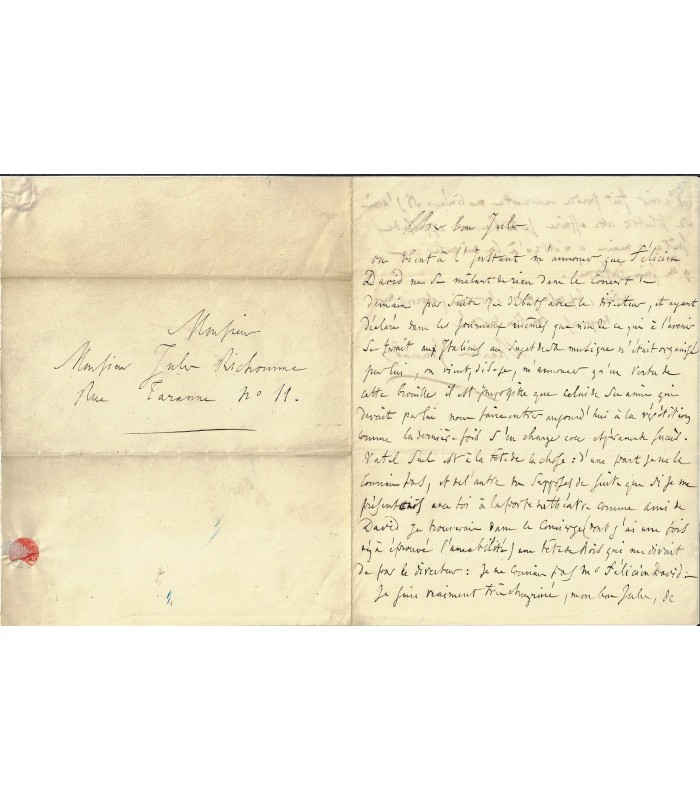 Monsieur
Monsieur Jules Richomme
Rue Taranne no 11.
Mon bon Jules
on vient à l'instant m'annoncer que Félicien
David ne se mêlant de rien dans le Concert de
demain par suite de débats avec le directeur, et ayant
déclaré dans les journaux mêmes que rien de ce qui à l'avenir
se ferait aux Italiens au sujet de sa musique n'était organisé
par lui, on vient, dis-je, m'annoncer qu'en vertu de
cette brouille il est impossible que celui de ses amis qui
devait par lui nous faire entrer aujourd'hui à la répétition
comme la dernière fois s'en charge avec espérance de succès.
Vatel seul est à la tête de la chose : d'une part je ne le
connais pas, et de l'autre tu supposes de suite que si je me
présentais avec toi à la porte du théâtre comme ami de
David je trouverais dans le Concierge (dont j'ai une fois
déjà éprouvé l'amabilité) une tête de bois qui me dirait
de par le directeur : Je ne connais pas Mr Félicien David :
Je suis vraiment très chagriné, mon bon Jules, de